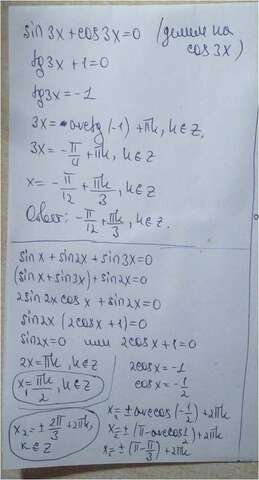 sin 3x + cos 3x = 0 (делим на cos 3x)
tg 3x + 1 = 0
tg 3x = -1
3x = arctg(-1) + πk, k∈Z,
3x = -π/4 + πk, k∈Z
x = -π/12 + πk/3, k∈Z
Ответ: -π/12 + πk/3, k∈Z.
sin x + sin 2x + sin 3x = 0
(sin x + sin 3x) + sin 2x = 0
2 sin 2x cos x + sin 2x = 0
sin 2x (2cos x + 1) = 0
sin 2x = 0 или 2cos x + 1 = 0
2x = πk, k∈Z
x₁ = πk/2, k∈Z
x₂ = ± 2π/3 + 2πk, k∈Z
2cos x = -1
cos x = -1/2
x₂ = ± arccos(-1/2) + 2πk
x₂ = ± (π - arccos 1/2) + 2πk
x₂ = ± (π - π/3) + 2πk